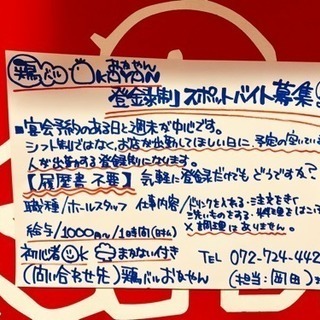 鶏バル OKAYAN おかやん
登録制 スポットバイト募集!
■宴会予約のある日と週末が中心です。
シフト制ではなく、お店が出勤してほしい日に、予定の空いている
人が出勤する登録制になります。
【履歴書不要】 気軽に登録だけでもどうですか?
職種/ホールスタッフ 仕事内容/ドリンクを入れる・ご注文をきく
洗いものをする・料理をはこぶ
給与/1000円〜/1時間(日払) ※調理はありません。
初心者OK まかない付き
(問い合わせ先)鶏バルおかやん
TEL 072-724-442
(担当:岡田)